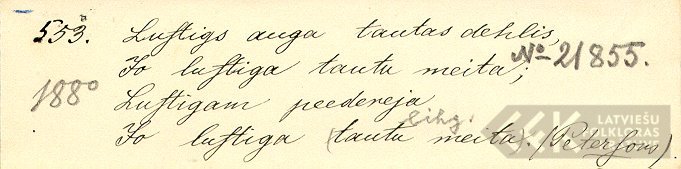 553. Luſtigs auga tautas dehlis,
Jo luſtiga tautu meita;
№ 21855.
1880
Luſtigam peedereja
Jo luſtiga (tautu meita). (Peterſons).
LATVIEŠU
FOLKLORAS